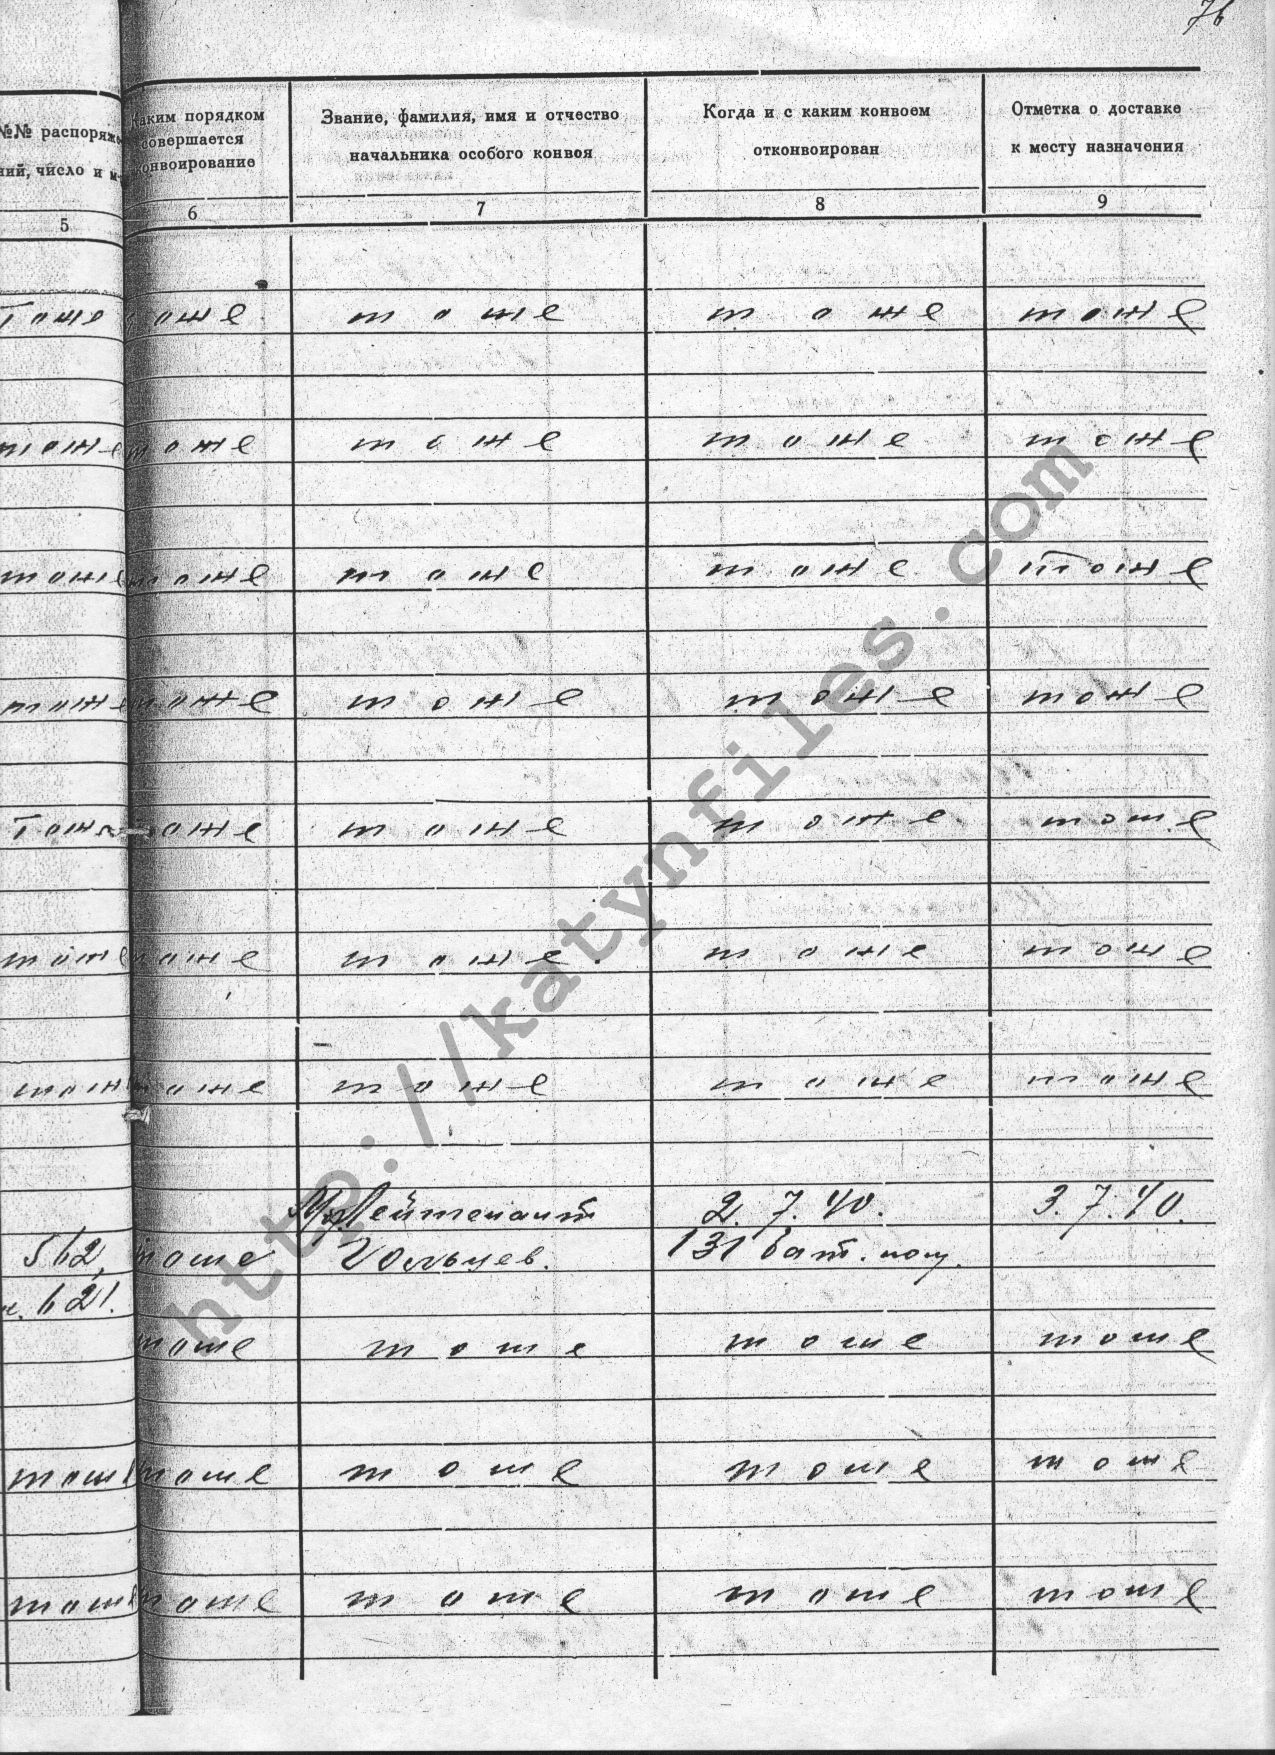 76
№№ распоряже
ний, число и м-
Каким порядком
совершается
конвоирование
Звание, фамилия, имя и отчество
начальника особого конвоя
Когда и с каким конвоем
отконвоирован
Отметка о доставке
к месту назначения
5 6 7 8 9
тоже тоже тоже тоже тоже
тоже тоже тоже тоже тоже
тоже тоже тоже тоже тоже
тоже тоже тоже тоже тоже
тоже тоже тоже тоже тоже
тоже тоже тоже тоже тоже
тоже тоже тоже тоже тоже
Мл. Лейтенант 2.7.40. 3.7.40.
562, тоже Гольцев. 131 бат.
621.
тоже тоже тоже тоже
тоже тоже тоже тоже тоже
тоже тоже тоже тоже тоже
http://katynfiles.com